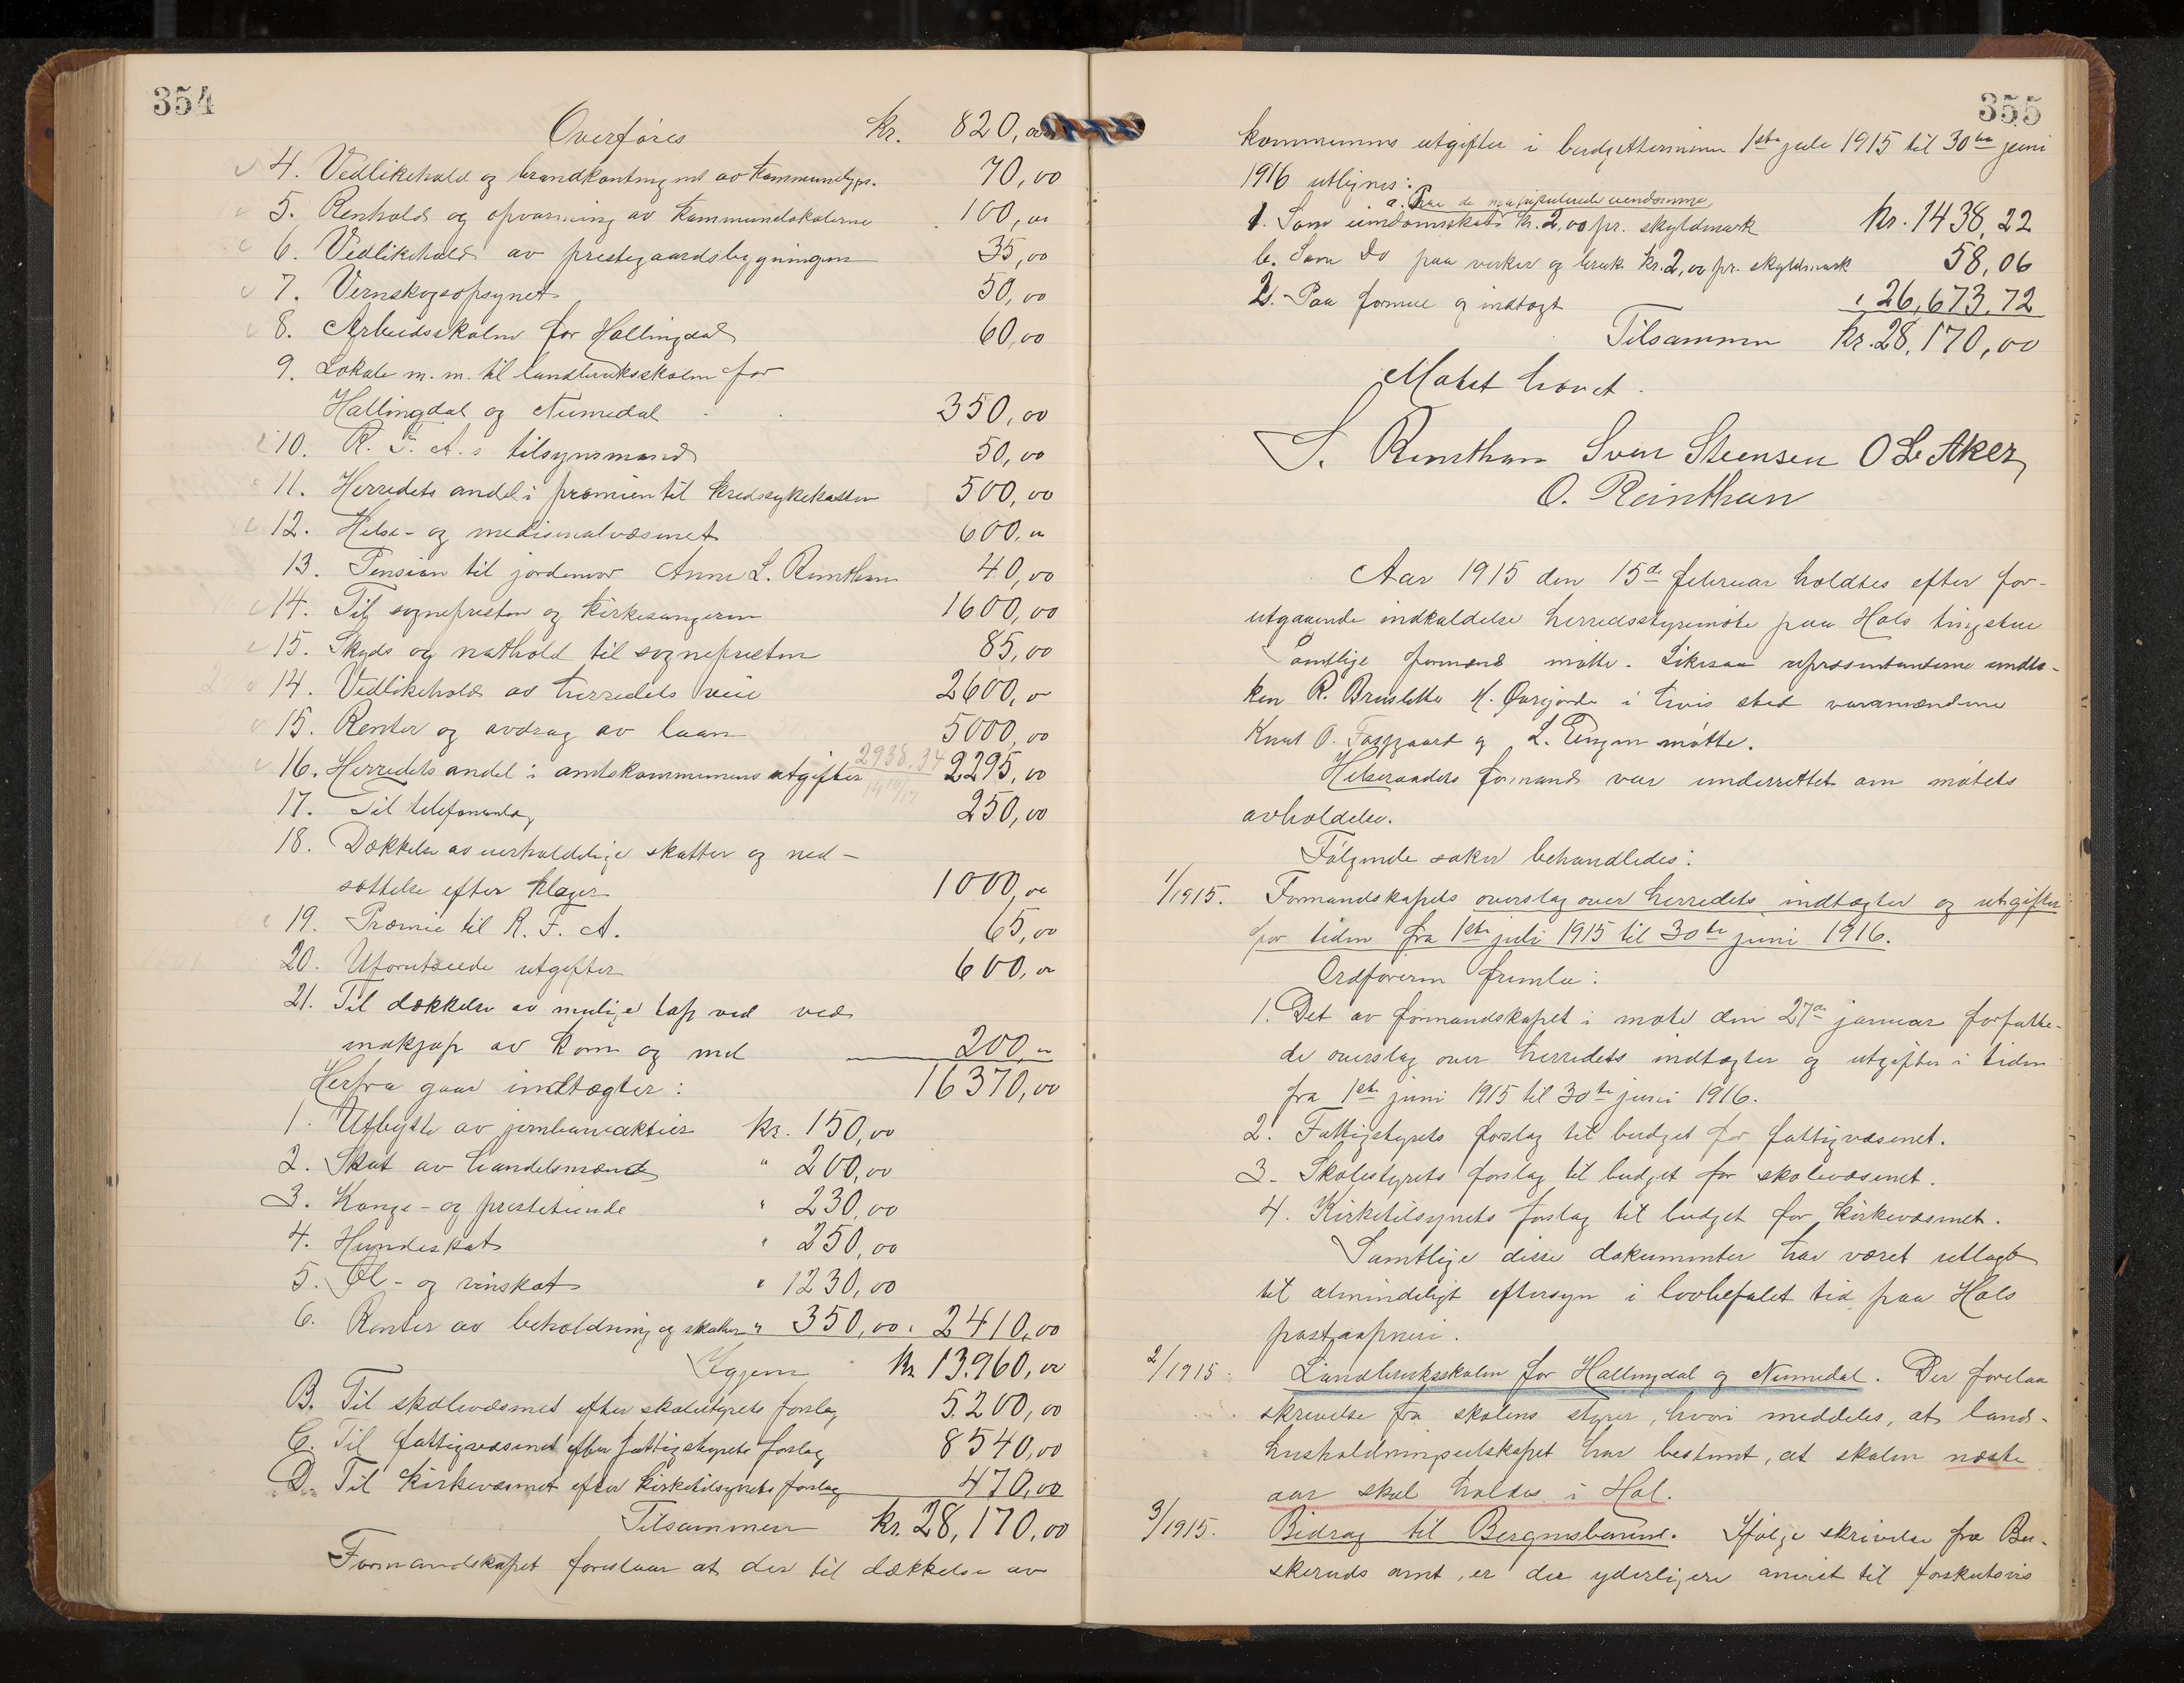 354
Overføres kr. 820,00
4. Vedlikehold og brandkontingent av kommunebygn. 70,00
5. Renhold og opvarming av kommunelokalerne 100,00
6. Vedlikehold av prestegaardsbygningen 35,00
7. Vernskogsopsynet 50,00
8. Arbeidsskolen for Hallingdal 60,00
9. Lokale m.m. til landbruksskolen for
Hallingdal og Numedal 350,00
10. R. F. A.s tilsynsmand 50,00
11. Herredets andel i præmien til kredssykekassen 500,00
12. Helse- og medisinalvæsenet 600,00
13. Pension til jordemor Anne L. 40,00
14. Til sognepresten og kirkesangeren 1600,00
15. Skyds og nathold til sognepresten 85,00
14. Vedlikehold av herredets veie 2600,00
15. Renter og avdrag av laan 5000,00
16. Herredets andel i amtskommunens utgifter 2938,34 2295,00
17. Til telefonanlæg 250,00
18. Dækkelse av uerholdelige skatter og ned-
sættelse efter klager 1000,00
19. Præmie til R. F. A. 65,00
20. Uforutseede utgifter 600,00
21. Til dækkelse av mulige tap ved ved
inkjøp av korn og mel 200,00
Herfra gaar indtægter: 16370,00
1. Utbytte av jernbaneaktier kr. 150,00
2. Skat av handelsmænd " 200,00
3. Konge- og prestetiende " 230,00
4. Hundeskat " 250,00
5. Øl- og vinskat " 1230,00
6. Renter av beholdning og skatter " 350,00 " 2410,00
Igjen kr. 13.960,00
B. Til skolevæsenet efter skolestyrets forslag 5.200,00
C. Til fattigvæsenet efter fattigstyrets forslag 8540,00
D. Til kirkevæsenet efter kirketilsynets forslag 470,00
Tilsammen kr. 28,170,00
Formandskapet foreslaar at der til dækkelse av
355
kommunens utgifter i budgetterminen 1ste juli 1915 til 30te juni
1916 utlignes:
a. Paa de matrikulerede eiendomme
1. Som eiendomsskat kr. 2,00 pr. skyldmark kr. 1438,22
b. Som do paa verker og bruk kr. 2,00 pr. skyldmark 58,06
2. Paa formue og indtægt " 26,673,72
Tilsammen kr. 28,170,00
Møtet hævet.
S. Reinthun Sven Steensen O L Aker
O. Reinthun
Aar 1915 den 15de februar holdtes efter for-
utgaaende indkaldelse herredsstyremøte paa Hols tingstue
Samtlige formænd møtte. Likesaa repræsentanterne undta-
ken R. Brusletto H. i hvis sted varamændene
Knut O. og L. møtte.
Helseraadets formand var underrettet om møtets
avholdelse.
Følgende saker behandledes:
1/1915. Formandskapets overslag over herredets indtægter og utgifter
for tiden fra 1ste juli 1915 til 30te juni 1916.
Ordføreren fremla:
1. Det av formandskapet i møte den 27de januar forfatte-
de overslag over herredets indtægter og utgifter i tiden
fra 1ste juni 1915 til 30te juni 1916.
2. Fattigstyrets forslag til budget for fattigvæsenet.
3. Skolestyrets forslag til budget for skolevæsenet.
4. Kirketilsynets forslag til budget for kirkevæsenet.
Samtlige disse dokumenter har været utlagt
til almindeligt eftersyn i lovbefalet tid paa Hols
postaapneri.
2/1915. Landbruksskolen for Hallingdal og Numedal. Der forelaa
skrivelse fra skolens styrer, hvori meddeles, at land-
husholdningsselskapet har bestemt, at skolen næste
aar skal holdes i Hol.
3/1915. Bidrag til Bergensbanen. Ifølge skrivelse fra Bu-
skeruds amt, er der yderligere anvist til forskutsvis